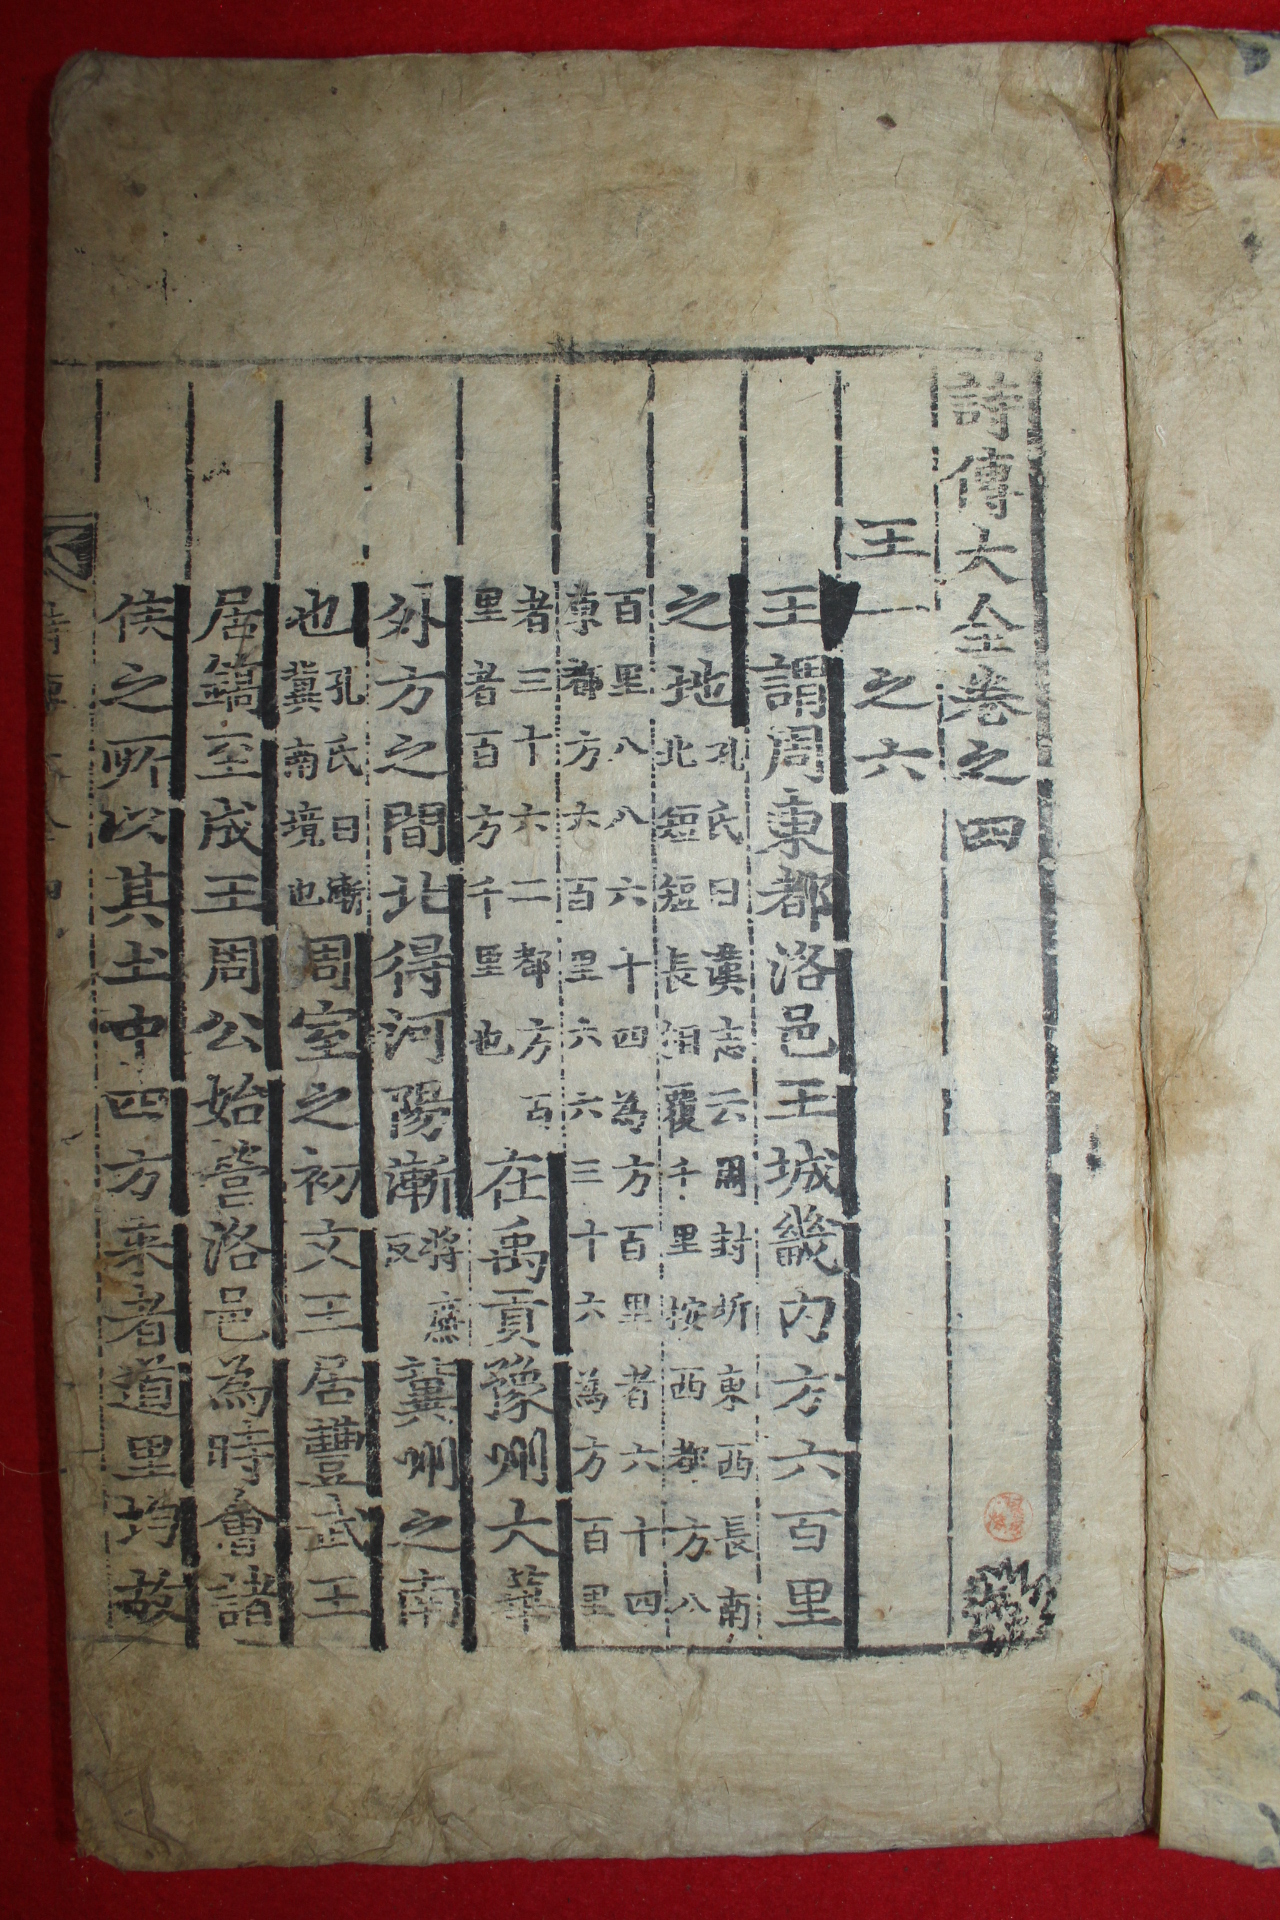 詩傳大全卷之四
王一之六
王謂周東都洛邑王城畿内方六百里
之地孔氏曰漢志云周封圻東西長南
北短短長相覆千里按西都方八
百里八八六十四為方百里者六十四
東都方六百里六六三十六為方百里
者三十六二都方百
里者百方千里也在禹貢豫州大華
外方之間北得河陽漸將廉反冀州之南
也孔氏曰漸
冀南境也周室之初文王居豐武王
居鎬至成王周公始營洛邑為時會諸
侯之所以其土中四方来者道里均故